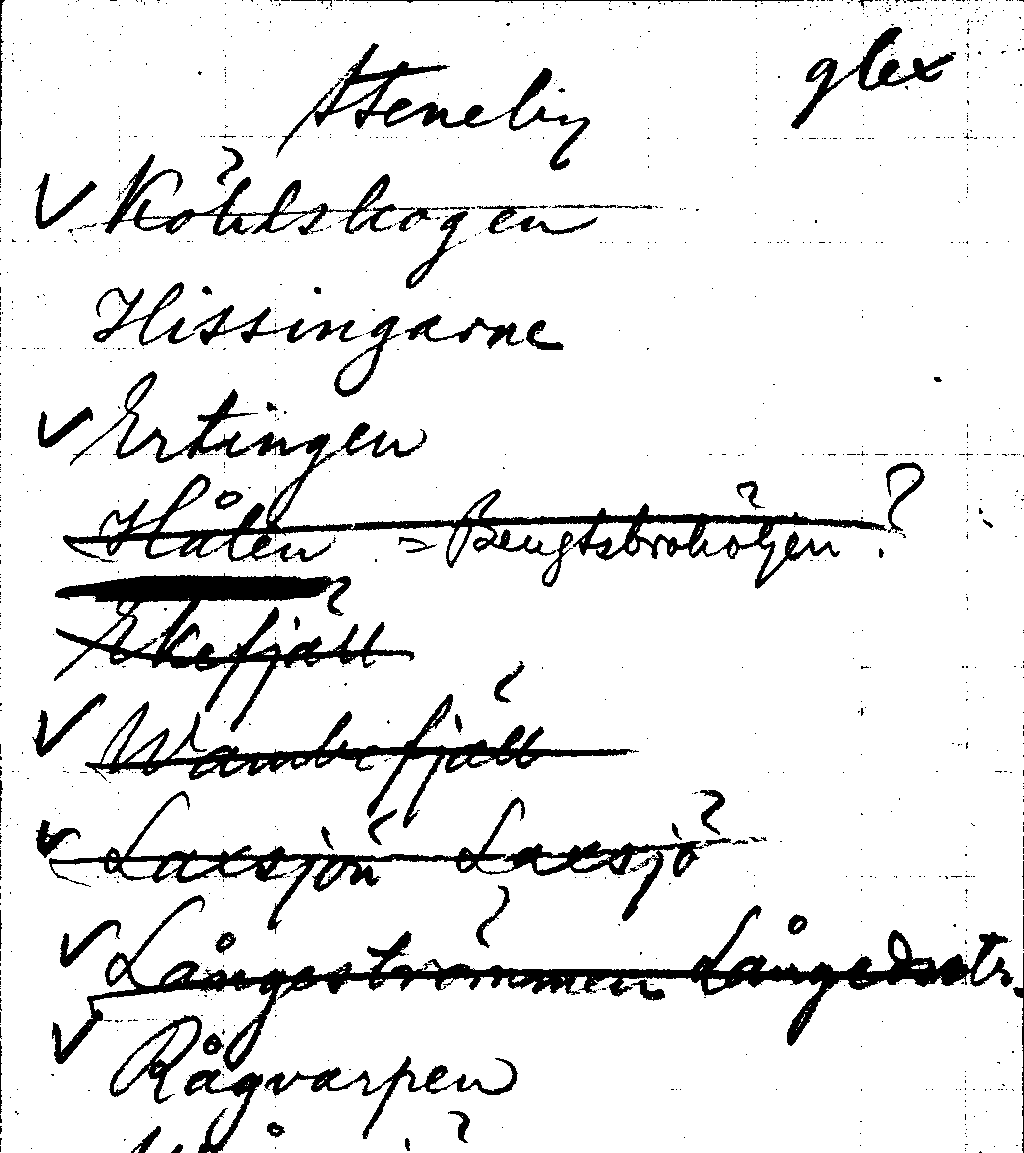 Steneby glex
✓ Köhlskogen
Hissingarne
✓ Ertingen
Hålen = Bengtsbrohöljen?
Ekefjäll
✓ Wambefjäll
✓ Laxsjön Laxsjö
✓ Långeströmmen Långedsstr.
✓ Rågvarpen